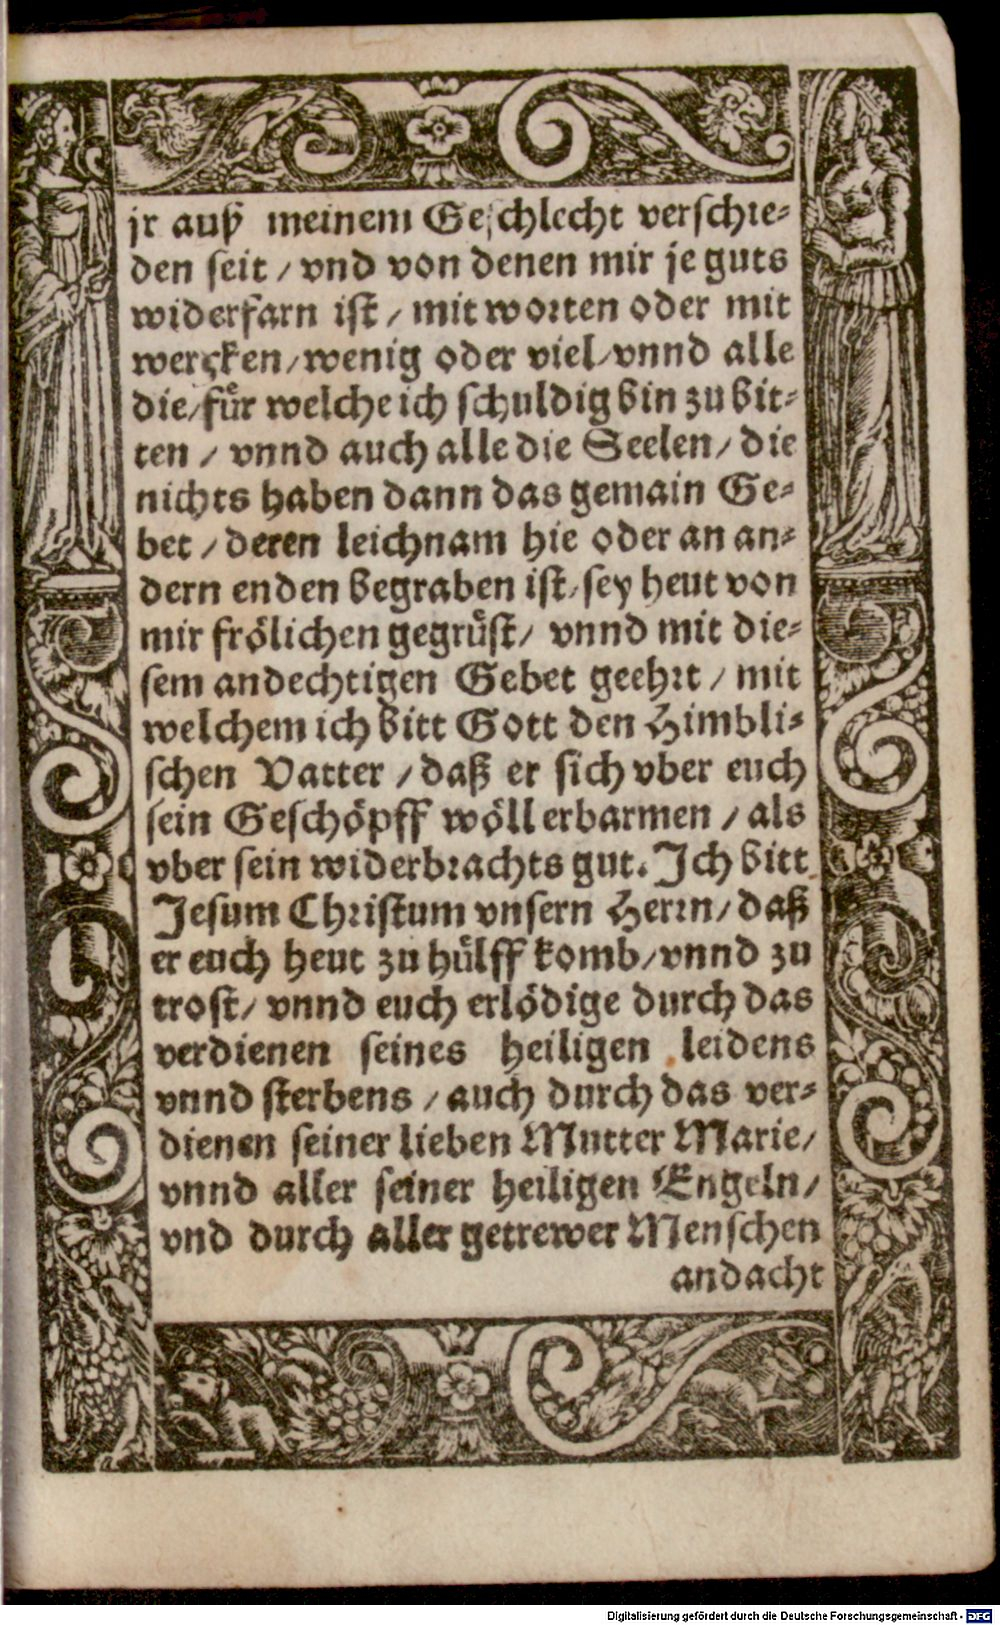 jr auß meinem Geschlecht verschie-
den seit / vnd von denen mir je guts
widerfarn ist / mit worten oder mit
wercken / wenig oder viel / vnnd alle
die / für welche ich schuldig bin zu bit-
ten / vnnd auch alle die Seelen / die
nichts haben dann das gemain Ge-
bet / deren leichnam hie oder an an-
dern enden begraben ist / sey heut von
mir frölichen gegrüst / vnnd mit die-
sem andechtigen Gebet geehrt / mit
welchem ich bitt Gott den Himbli-
schen Vatter / daß er sich vber euch
sein Geschöpff wöll erbarmen / als
vber sein widerbrachts gut. Ich bitt
Jesum Christum vnsern Herrn / daß
er euch heut zu hülff komb / vnnd zu
trost / vnnd euch erlödige durch das
verdienen seines heiligen leidens
vnnd sterbens / auch durch das ver-
dienen seiner lieben Mutter Marie /
vnnd aller seiner heiligen Engeln /
vnd durch aller getrewer Menschen
andacht
Digitalisierung gefördert durch die Deutsche Forschungsgemeinschaft - DFG